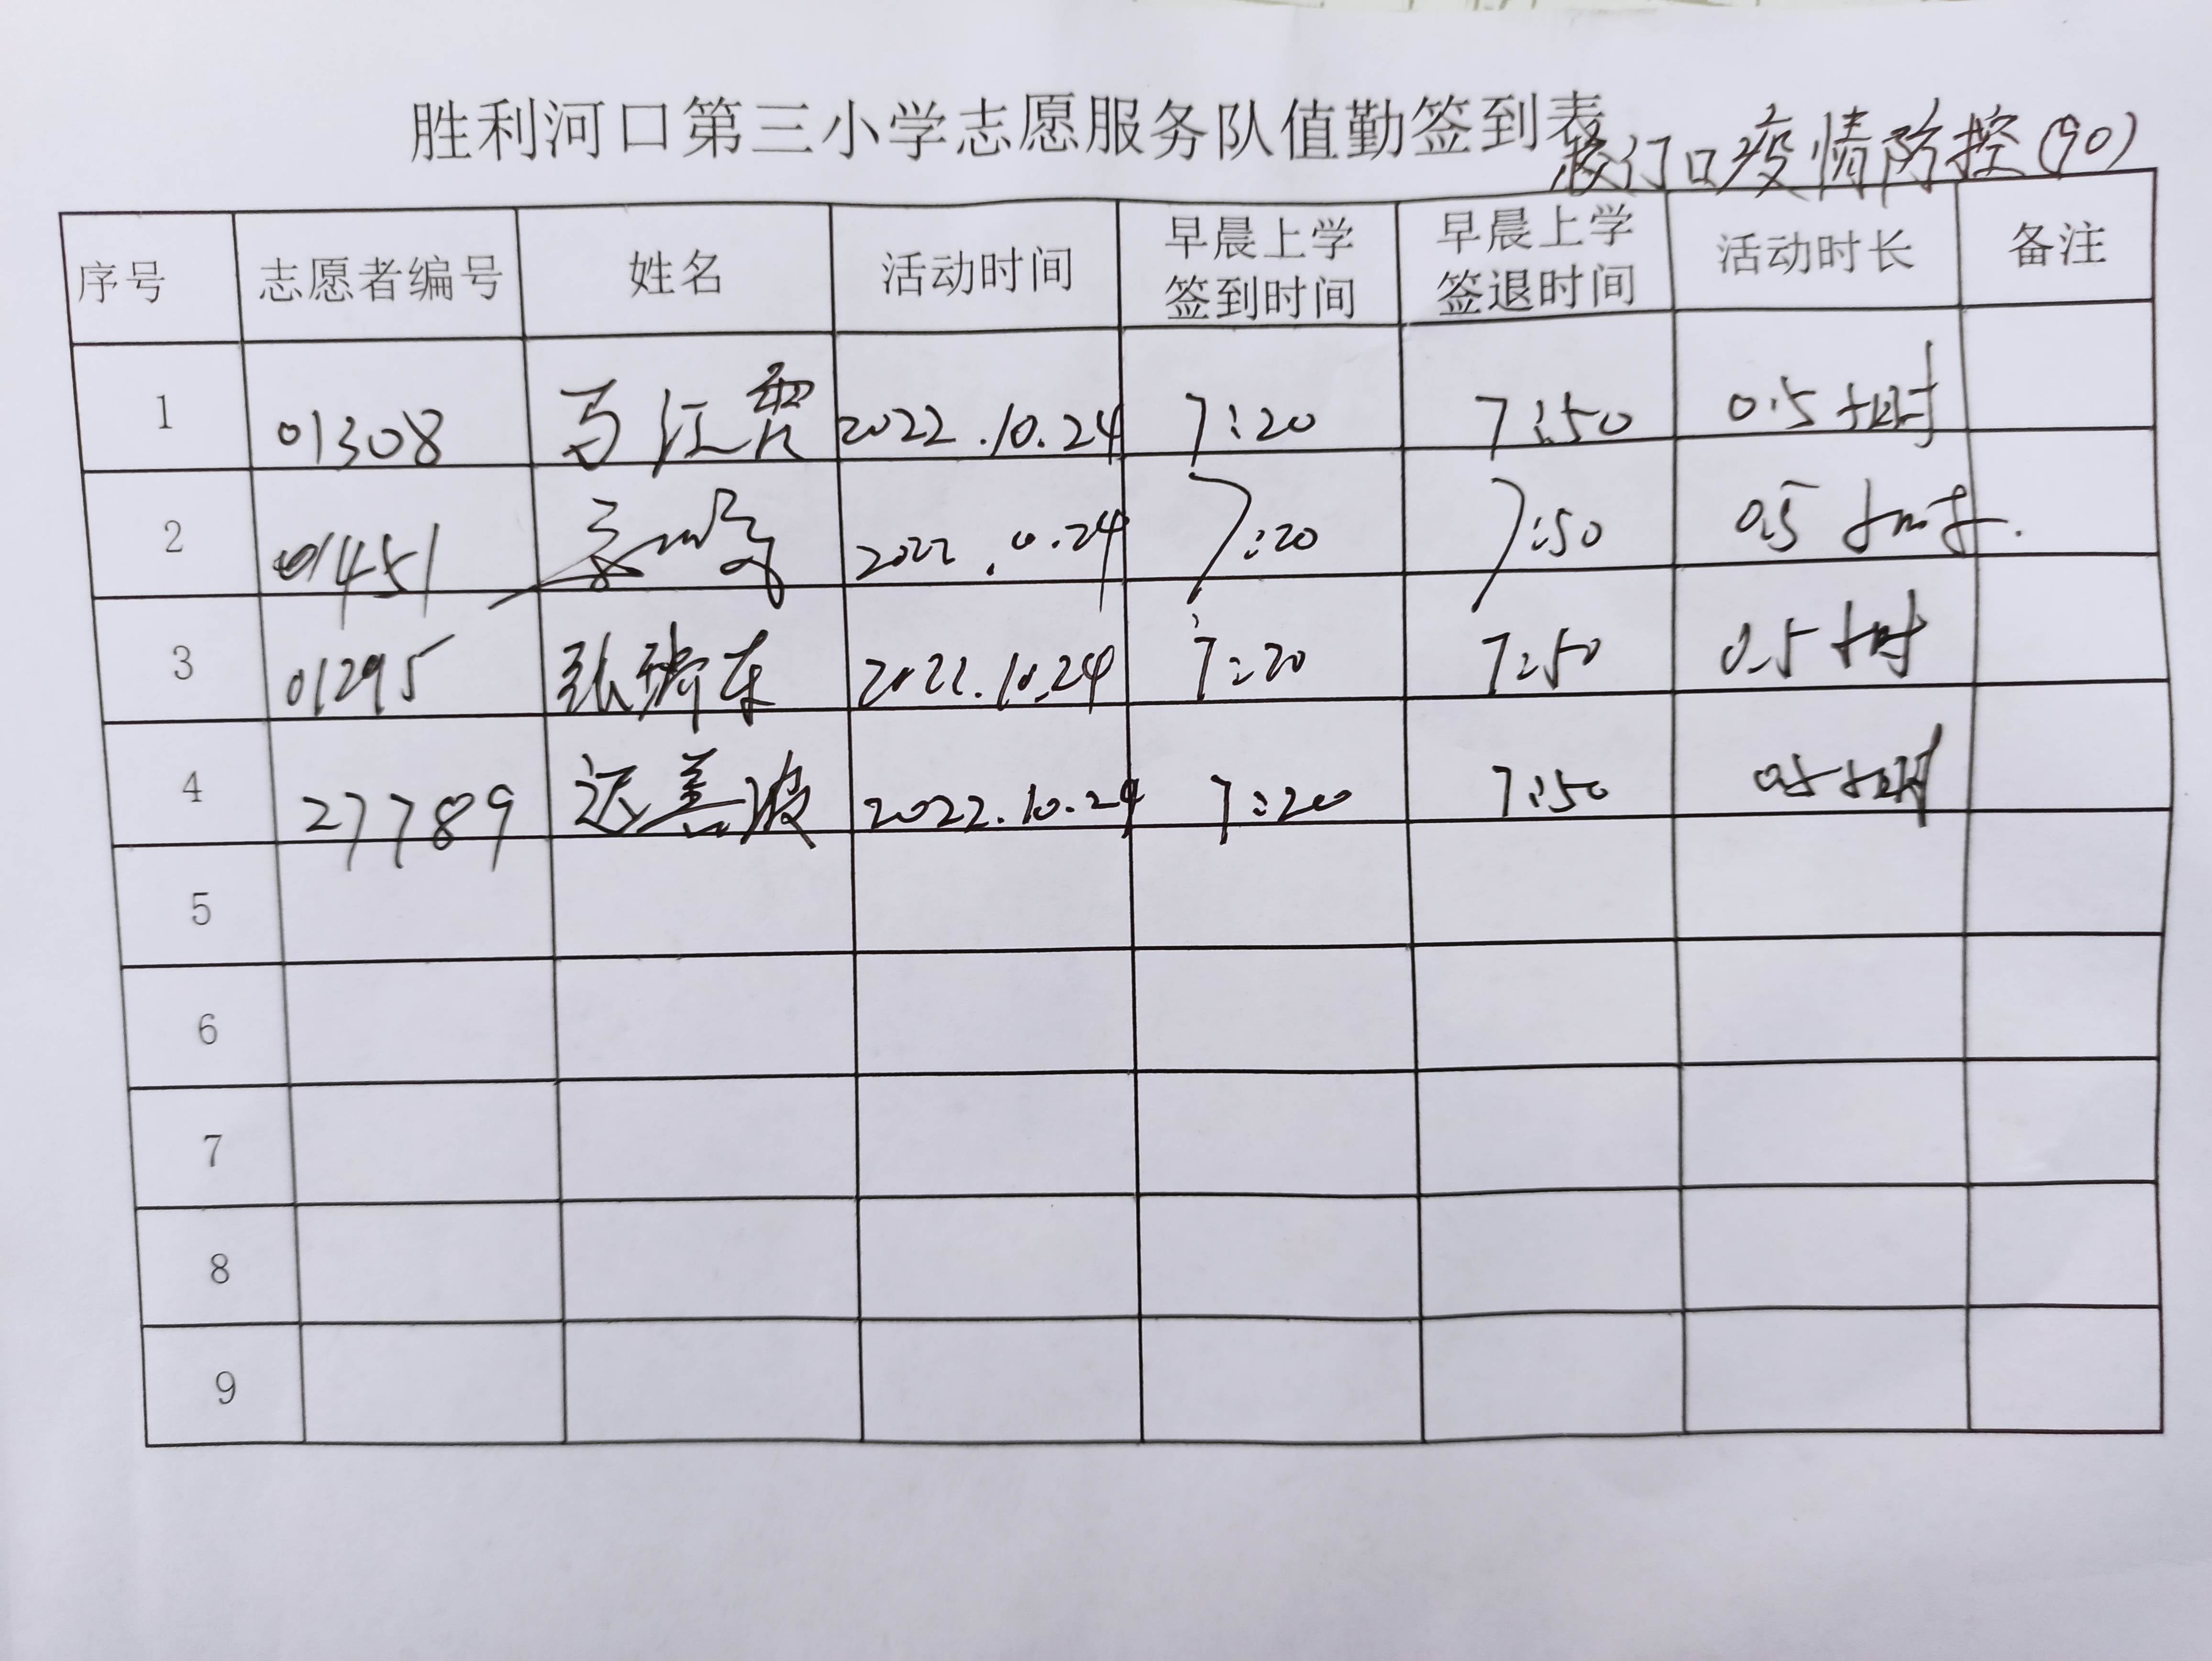 胜利河口第三小学志愿服务队值勤签到表
校门口疫情防控(90)
序号 志愿者编号 姓名 活动时间 早晨上学签到时间 早晨上学签退时间 活动时长 备注
1 01308 马江霞 2022.10.24 7:20 7:50 0.5小时
2 01451 2022.10.24 7:20 7:50 0.5小时.
3 01295 张瑞东 2022.10.24 7:20 7:50 0.5小时
4 27789 迟善波 2022.10.24 7:20 7:50 0.5小时
5
6
7
8
9